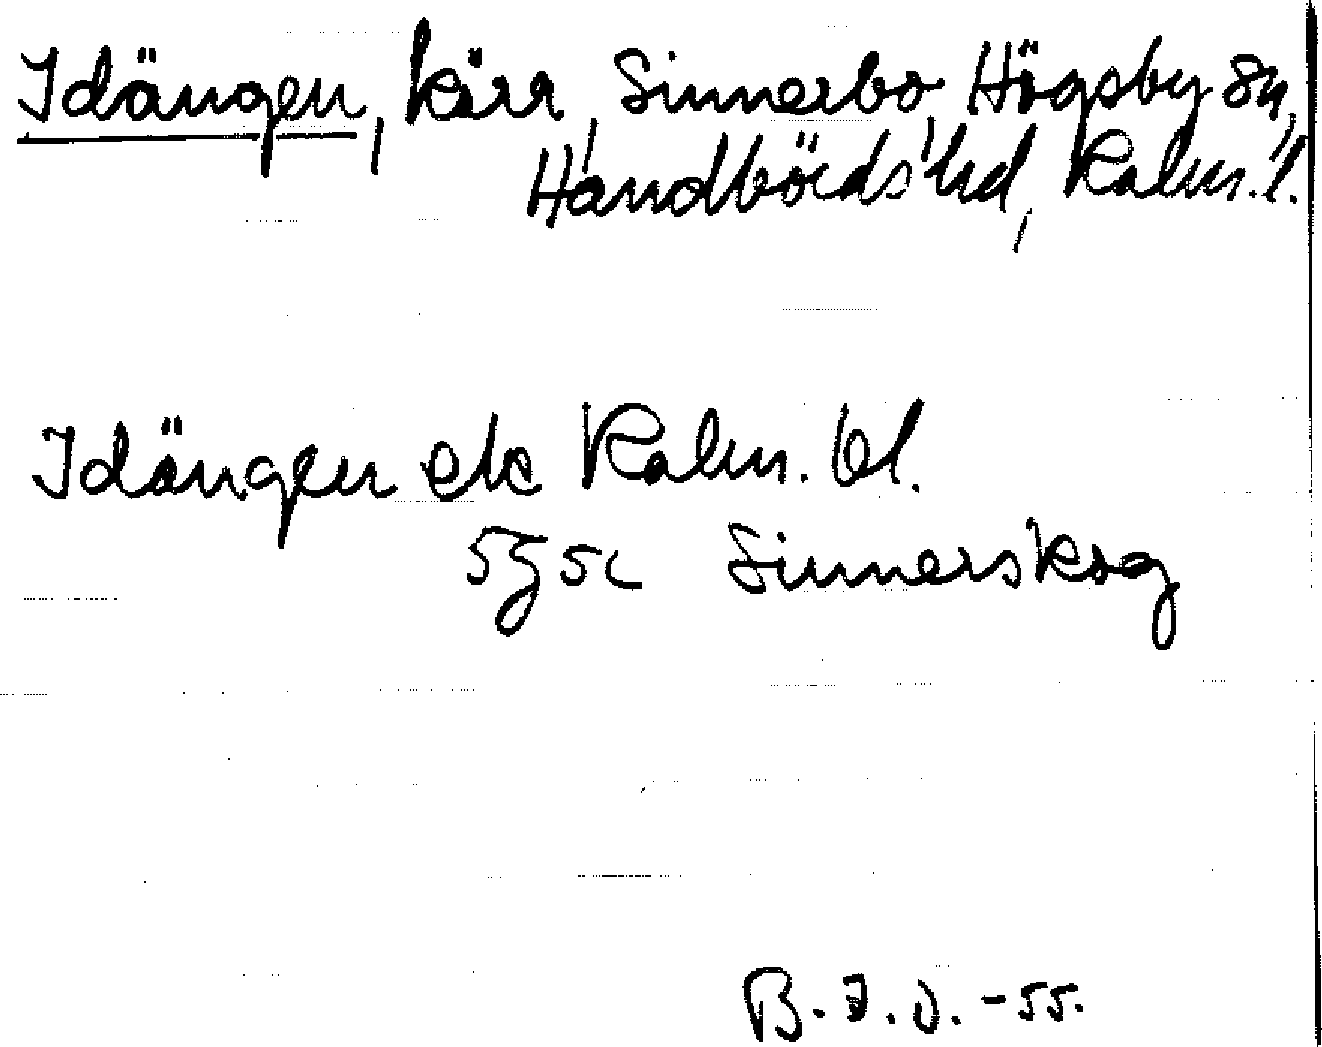 Idängen, kärr, Sinnerbo, Högsby sn,
Handbörds hd, Kalm. l.
Idängen ek Kalm. bl.
5g5c Sinnerskog
B.I.O. -55.